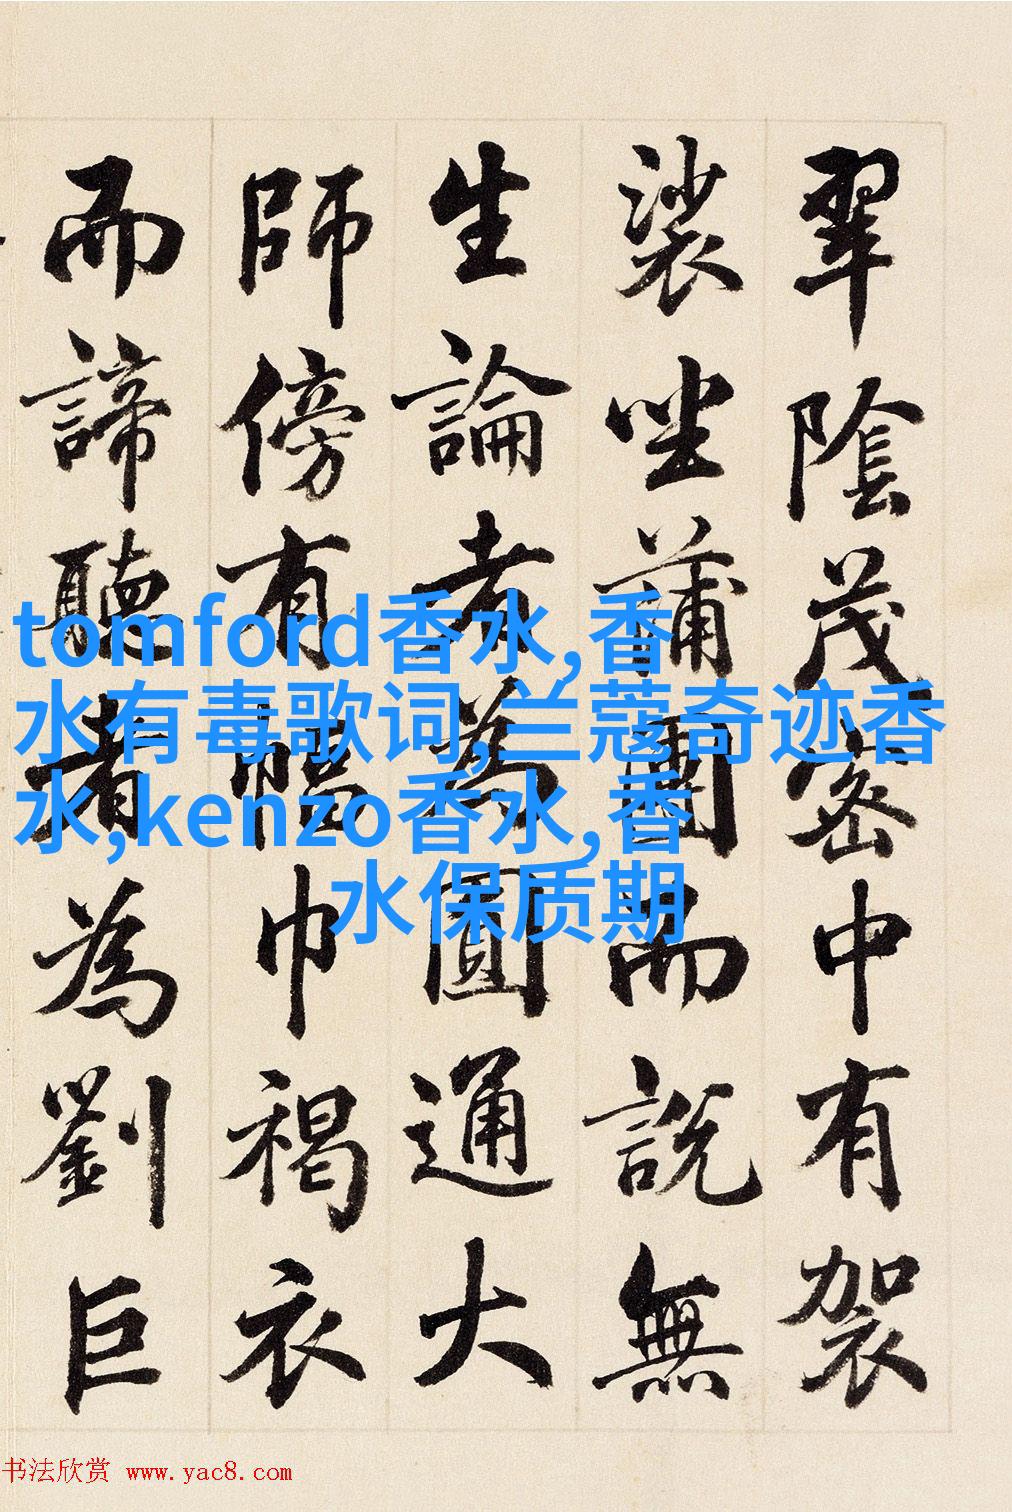 翠陰茂密中有袈
裟坐蒲團而說無
生論者為圓通大
師傍有幅巾褐衣
而諦聽者為劉巨
tomford香水,香
水有毒歌词,兰蔻奇迹香
水,kenzo香水,香
水保质期
书法欣赏 www.yac8.com